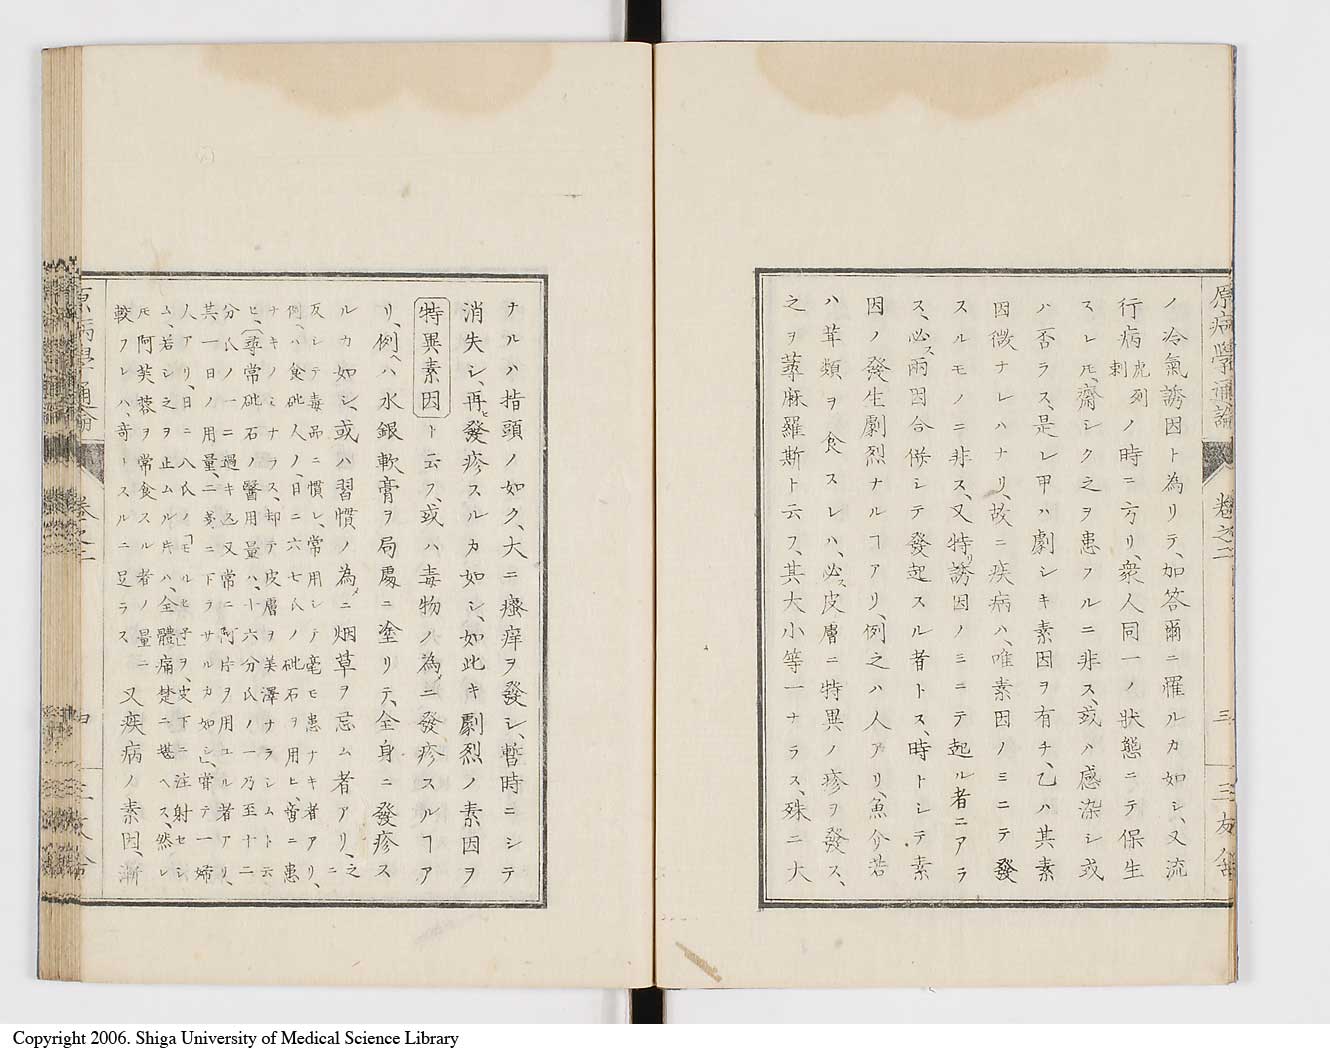 原病學通論 卷之二 三 三友舍
ノ冷氣誘因ト為リテ、加答爾ニ罹ルカ如シ、又流
行病虎列剌ノ時ニ方リ、衆人同一ノ狀態ニテ保生
スレ𪜈、齋シク之ヲ患フルニ非ス、或ハ感染シ或
ハ否ラス、是レ甲ハ劇シキ素因ヲ有チ、乙ハ其素
因微ナレハナリ、故ニ疾病ハ、唯素因ノミニテ發
スルモノニ非ス、又特リ誘因ノミニテ起ル者ニアラ
ス、必ス兩因合併シテ發起スル者トス、時トシテ素
因ノ發生劇烈ナルヿアリ、例之ハ人アリ、魚介若
ハ茸類ヲ食スレハ、必ス皮膚ニ特異ノ疹ヲ發ス、
之ヲ蕁麻羅斯ト云フ、其大小等一ナラス、殊ニ大
ナルハ指頭ノ如ク、大ニ瘙痒ヲ發シ、暫時ニシテ
消失シ、再ヒ發疹スルカ如シ、如此キ劇烈ノ素因ヲ
特異素因ト云フ、或ハ毒物ノ為メニ發疹スルヿア
リ、例ヘハ水銀軟膏ヲ局處ニ塗リテ、全身ニ發疹ス
ルカ如シ、或ハ習慣ノ為メニ烟草ヲ忌ム者アリ、之ニ
反レテ毒品ニ慣レ、常用シテ毫モ患ナキ者アリ、
例ハ食砒人ノ、日ニ六七氏ノ砒石ヲ用ヒ、啻ニ患
ナキノミナラス、却テ皮膚ヲ美澤ナラシムト云
ヒ、(尋常砒石ノ醫用量ハ、十六分氏ノ一乃至十二
分氏ノ一ニ過キス)又常ニ阿片ヲ用ユル者アリ、
其一日ノ用量、二ニ下ラサルカ如シ、嘗テ一婦
人アリ、日ニ八氏ノ「モルヒ子」ヲ、皮下ニ注射セシ
ム、若シ之ヲ止ムル片ハ、全體痛楚ニ堪ヘス、然レ
𪜈阿芙蓉ヲ常食スル者ノ量ニ
較フレハ、奇トスルニ足ラス 又疾病ノ素因、漸
原病學通論 卷之二 三友舍
Copyright 2006. Shiga University of Medical Science Library